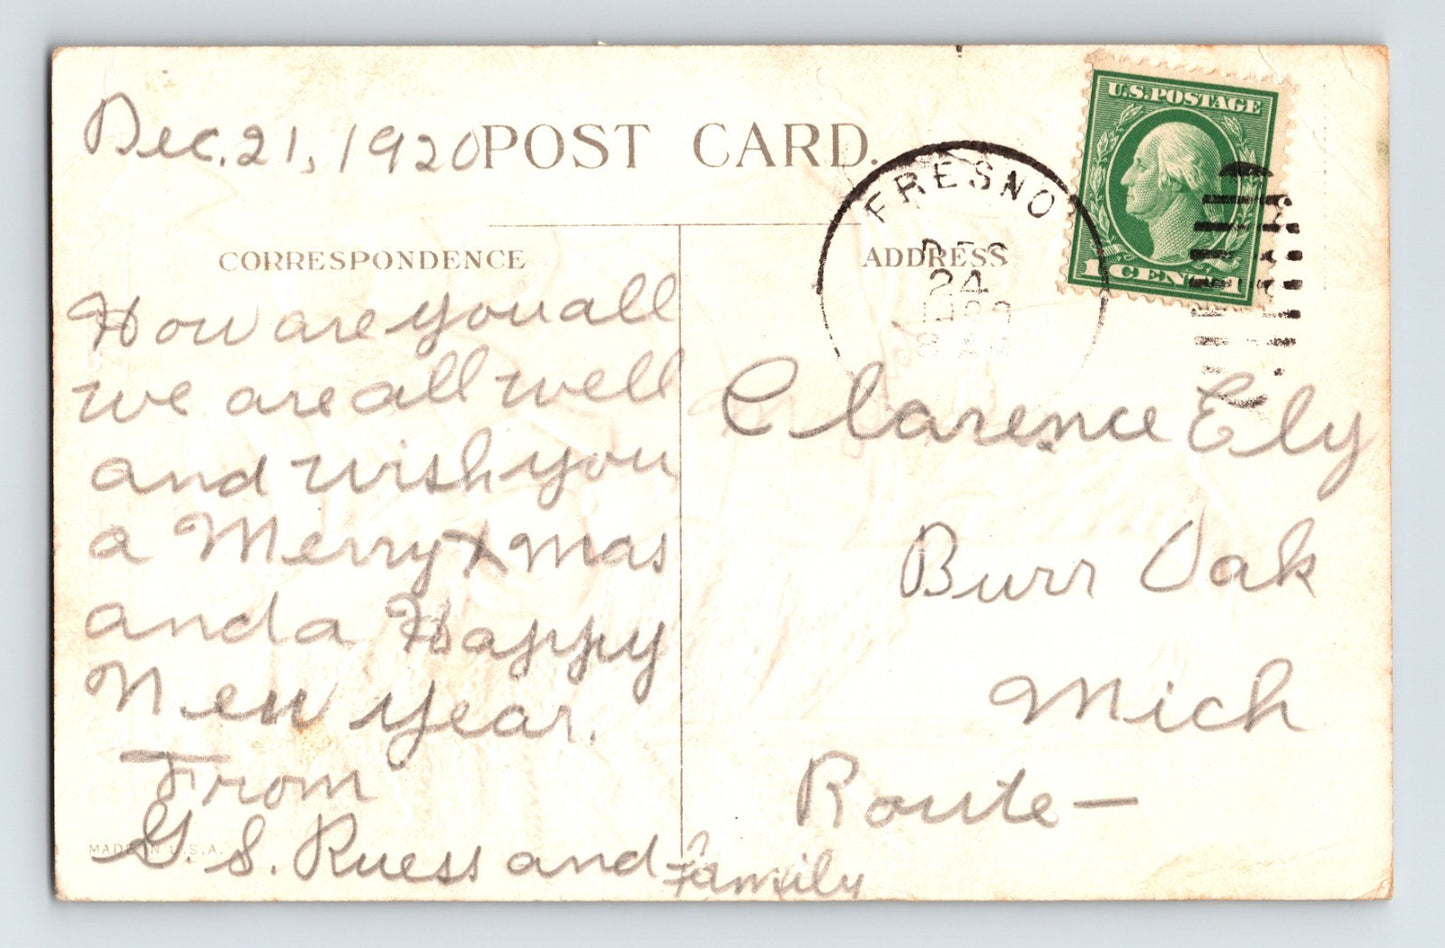 Dec. 21, 1920
POST CARD.
FRESNO
DEC
24
U.S. POSTAGE
1 CENT 1
CORRESPONDENCE
ADDRESS
How are you all
we are all well
and wish you
a Merry Xmas
and a Happy
New Year.
From
G. S. Ruess and Family
MADE IN U.S.A.
Clarence Ely
Burr Oak
Mich
Route —